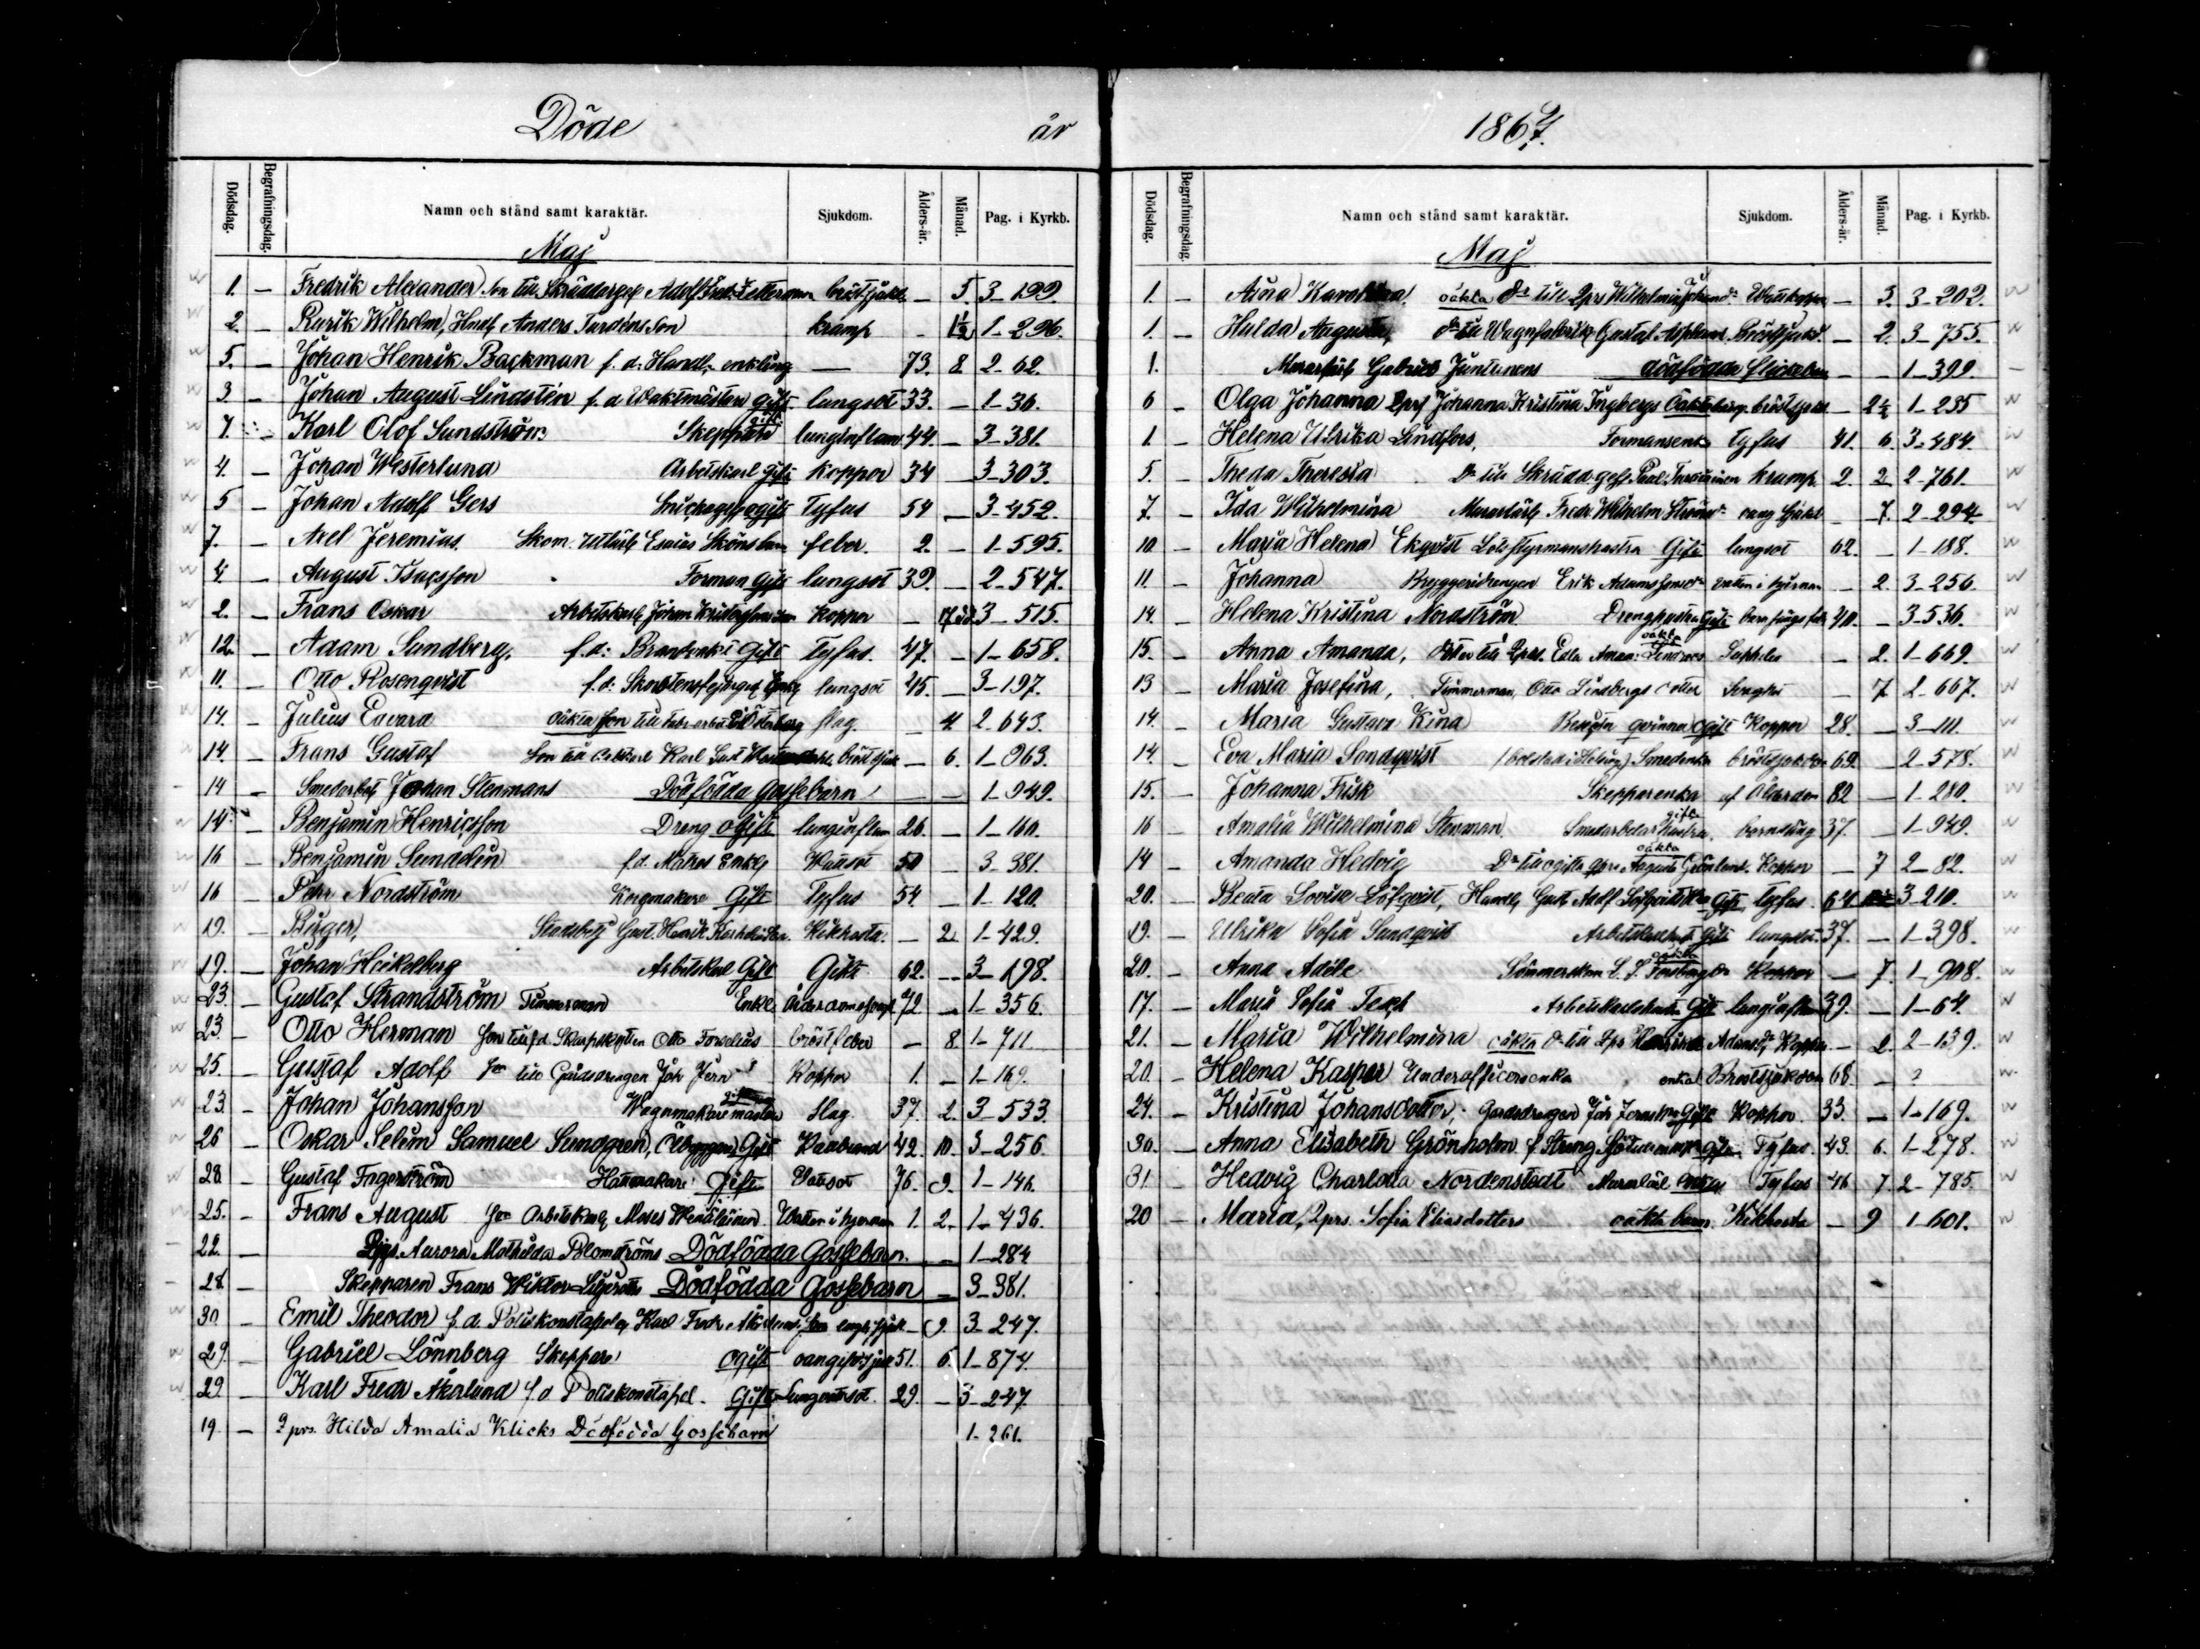 Döde år
Dödsdag. Begrafningsdag. Namn och stånd samt karaktär. Sjukdom. Ålders-år. Månad. Pag. i Kyrkb.
Maj
1. Fredrik Alexander son till Adolf Fred. 5 3-199
2. Rurik Wilhelm, Handl Anders Turdéns Son kramp 1½ 1-296.
5. Johan Henrik Backman f. d. Handl. enkling 73. 8 2-62.
3. Johan August Lindstén f. d. Waktmästare gift lungsot 33. 1-36.
7. Karl Olof Sundström Skeppare gift lunginflam 44. 3-381.
4. Johan Westerlund Arbetskarl Gift Koppor 34 3-303.
5 Johan Adolf Gers Tyfus 54 3-452.
7. Axel Jeremias. feber. 2. 1-595.
4. August Isacsson Forman Gift lungsot 39. 2-547.
2. Frans Oskar Koppor 3-515.
12. Adam Sundberg. f.d. Gift Tyfus. 47. 1-658.
11. Otto Rosenqvist f.d. lungsot 45. 3-197.
14. Julius Edvard oäkta son till slag. 4 2-643.
14. Frans Gustaf Son till Karl Gust 6. 1-963.
14 Smedarbet Johan Stenmans Dödfödda Gossebarn 1-949.
14 Benjamin Henricsson Dreng ogift lunginflam 26. 1-160.
16 Benjamin Sundelin f.d. Matros Enkl 50 3-381.
16 Pehr Nordström Korgmakare Gift Tyfus 54 1-120.
19. Birger, Gust. Henrik Kikhosta. 2 1-429.
19. Johan Heikelberg Arbetskarl Gift Gikt 62. 3-198.
23. Gustaf Strandström Timmerman Enkl 72. 1-356.
23 Otto Herman Son till f.d. Otto Forselius bröstfeber 8 1-711.
25. Gustaf Adolf Son till Gårdsdrengen Joh Jern Koppor 1. 1-169.
23. Johan Johansson Wagnmakaremästare Slag 37. 2. 3-533.
26 Oskar Selim Samuel Sundgren, Gift Kallbrand 42. 10. 3-256
28. Gustaf Fagerström Hattmakare Gift 76. 9. 1-146.
25. Frans August Son Arbetskarl Moses Wenäläinen Watten i hjernan 1. 2. 1-436.
22. Aurora Mathilda Blomströms Dödfödda Gossebarn 1-284
28. Skepparen Frans Wiktor Dödfödda Gossebarn 3-381.
30. Emil Theodor f. d. Poliskonstapeln Karl Fredr 9. 3-247.
29. Gabriel Lönnberg Skeppare ogift 51. 6. 1-874.
29 Karl Fredr Åkerlund f. d Poliskonstapel Gift Lungsot. 29. 3-247.
19 Qprs. Hilda Amalia Klicks Dödfödda Gossebarn 1-261.
1867.
Dödsdag. Begrafningsdag. Namn och stånd samt karaktär. Sjukdom. Ålders-år. Månad. Pag. i Kyrkb.
Maj
1. Aina Karolina oäkta Dr till Qprs 3. 3-202.
1. Hulda Augusta, Gustaf Bröstsjukd. 2. 3-755.
1. Gabriel Juntunens dödfödda flickebarn 1-399.
6 Olga Johanna Qprs Johanna Kristina Ingbergs oäkta 2½ 1-235
1. Helena Ulrika Lindfors, Formansenka Tyfus 41. 6. 3-484.
5. Theda Theresia Dr till kramp 2. 2 2-761.
7. Ida Wilhelmina Fredr Wilhelm 7. 2-294
10 Maria Helena Ekqvist Lotsstyrmanshustru Gift lungsot 62. 1-188.
11. Johanna Bryggeridrengen Erik 2. 3-256.
14. Helena Kristina Nordström Drenghustru Gift 40. 3-536.
15. Anna Amanda, dotter till Qprs. Edla oäkta 2. 1-669.
13 Maria Josefina, Timmerman, Otto Lindbergs dotter 7 2-667.
14. Maria Gustava Kina ogift Koppor 28. 3-111.
14. Eva Maria Sondqvist Smedenka 69. 2-578.
15. Johanna Frisk Skepparenka af Ålderdom 82 1-280.
16 Amalia Wilhelmina Stenman, gift 37. 1-949.
14 Amanda Hedvig oäkta Koppor 7 2-82.
20. Beata Lovisa Löfqvist, Handl. Gust. Adolf Gift Tyfus. 64 3-210.
19. Ulrika Sofia Sundqvist Gift lungsot. 37. 1-398.
20. Anna Adéle Koppor 7. 1-908.
17. Maria Sofia Gift 39. 1-64.
21. Maria Wilhelmina oäkta Dr till Qprs Koppor 2. 2-139.
20. Helena Kasper Underofficersenka enka Bröstsjukdom 68. ?
24. Kristina Johansdotter Gift Koppor 33. 1-169.
30. Anna Elisabeth Grönholm Tyfus. 43. 6. 1-278.
31. Hedvig Charlotta Nordenstedt Tyfus 46 7 2-785.
20 Maria, Qprs. Sofia Eliasdotters oäkta barn Kikhosta 9 1-601.